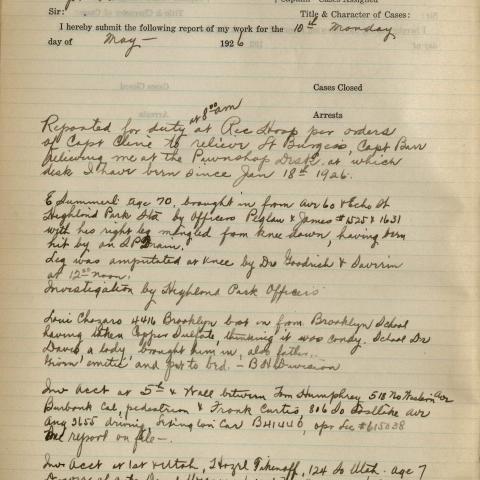 Captain Cases Assigned
Sir: Title & Character of Cases:
I hereby submit the following report of my work for the 10th Monday
day of May 1926
Cases Closed
Arrests
Reported for duty at 8:00 am at Rec Hosp per orders
of Capt Cline to relieve Lt Burgess, Capt Barr
relieving me at the Pawnshop Desk at which
desk I have been since Jan 18th 1926.
E Summerli age 70, brought in from Ave 60 & Echo St
Highland Park Sta by Officers & James #1525 & 1631
with his right leg mingled from knee down, having been
hit by an S.P. train.
Leg was amputated at knee by Drs Goodrich &
at 12:00 noon.
Investigation by Highland Park Officers
4416 Brooklyn bot in from Brooklyn School
having taken Copper Sulfate, thinking it was candy. School Dr
Davis a lady, brought him in, also father.
Given emetic and put to bed. - B H Division
Inv Acct at 5th & Wall between Tom Humphrey 518 No
Burbank Cal, pedestrian & Frank Curtis, 806 So Ave
driving, Irving Car B41446, opr Lic #615038
report on file -
Inv Acct at 1st & Utah, Hazel 124 So Utah. age 7